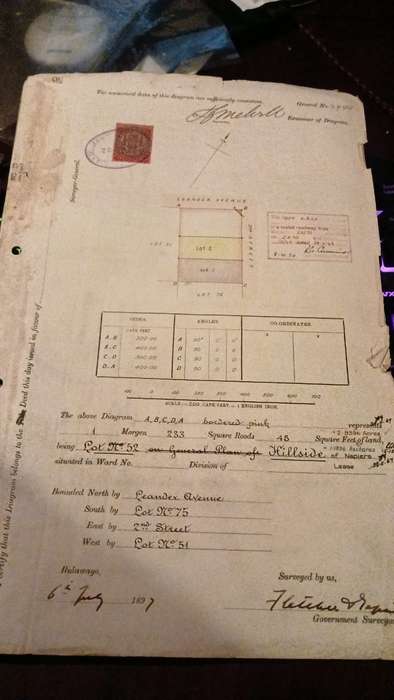 The numerical data of this diagram are sufficiently consistent.
General No.
Examiner of Diagrams.
Surveyor-General.
LEANDER AVENUE
LOT 51
LOT 2
LOT 1
2nd STREET
LOT 75
SIDES.
ANGLES
CO-ORDINATES
CAPE FEET
A.B 300.00 A 90° 0 0
B.C 400.00 B 90 0 0
C.D 300.00 C 90 0 0
D.A 400.00 D 90 0 0
SCALE :- 200 CAPE FEET = 1 ENGLISH INCH.
The above Diagram A,B,C,D,A bordered pink represents
1 Morgen 233 Square Roods 48 Square Feet of land,
being Lot No 52 on General Plan of Hillside of Napiers
situated in Ward No. Division of Lease
Bounded North by Leander Avenue
South by Lot No 75
East by 2nd Street
West by Lot No 51
Bulawayo,
6th July 1897
Surveyed by us,
Fletcher &
Government Surveyor
certify that this Diagram belongs to the Deed this day issued in favor of